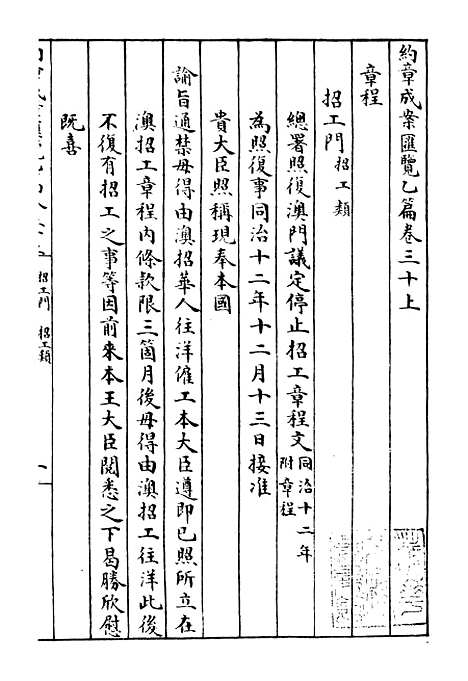 約章成案匯覽乙篇卷三十上
章程
招工門招工類
總署照復澳門議定停止招工章程文同治十二年附章程
為照復事同治十二年十二月十三日接准
貴大臣照稱現奉本國
諭旨通禁毋得由澳招華人往洋僱工本大臣遵即已照所立在
澳招工章程內條款限三箇月後毋得由澳招工往洋此後
不復有招工之事等因前來本王大臣閱悉之下曷勝欣慰
既喜
招工門 招工類
一